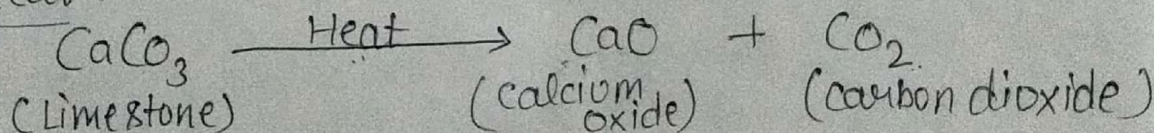 CaCo₃ —Heat→ CaO + Co₂
(Limestone) (calcium oxide) (carbon dioxide)